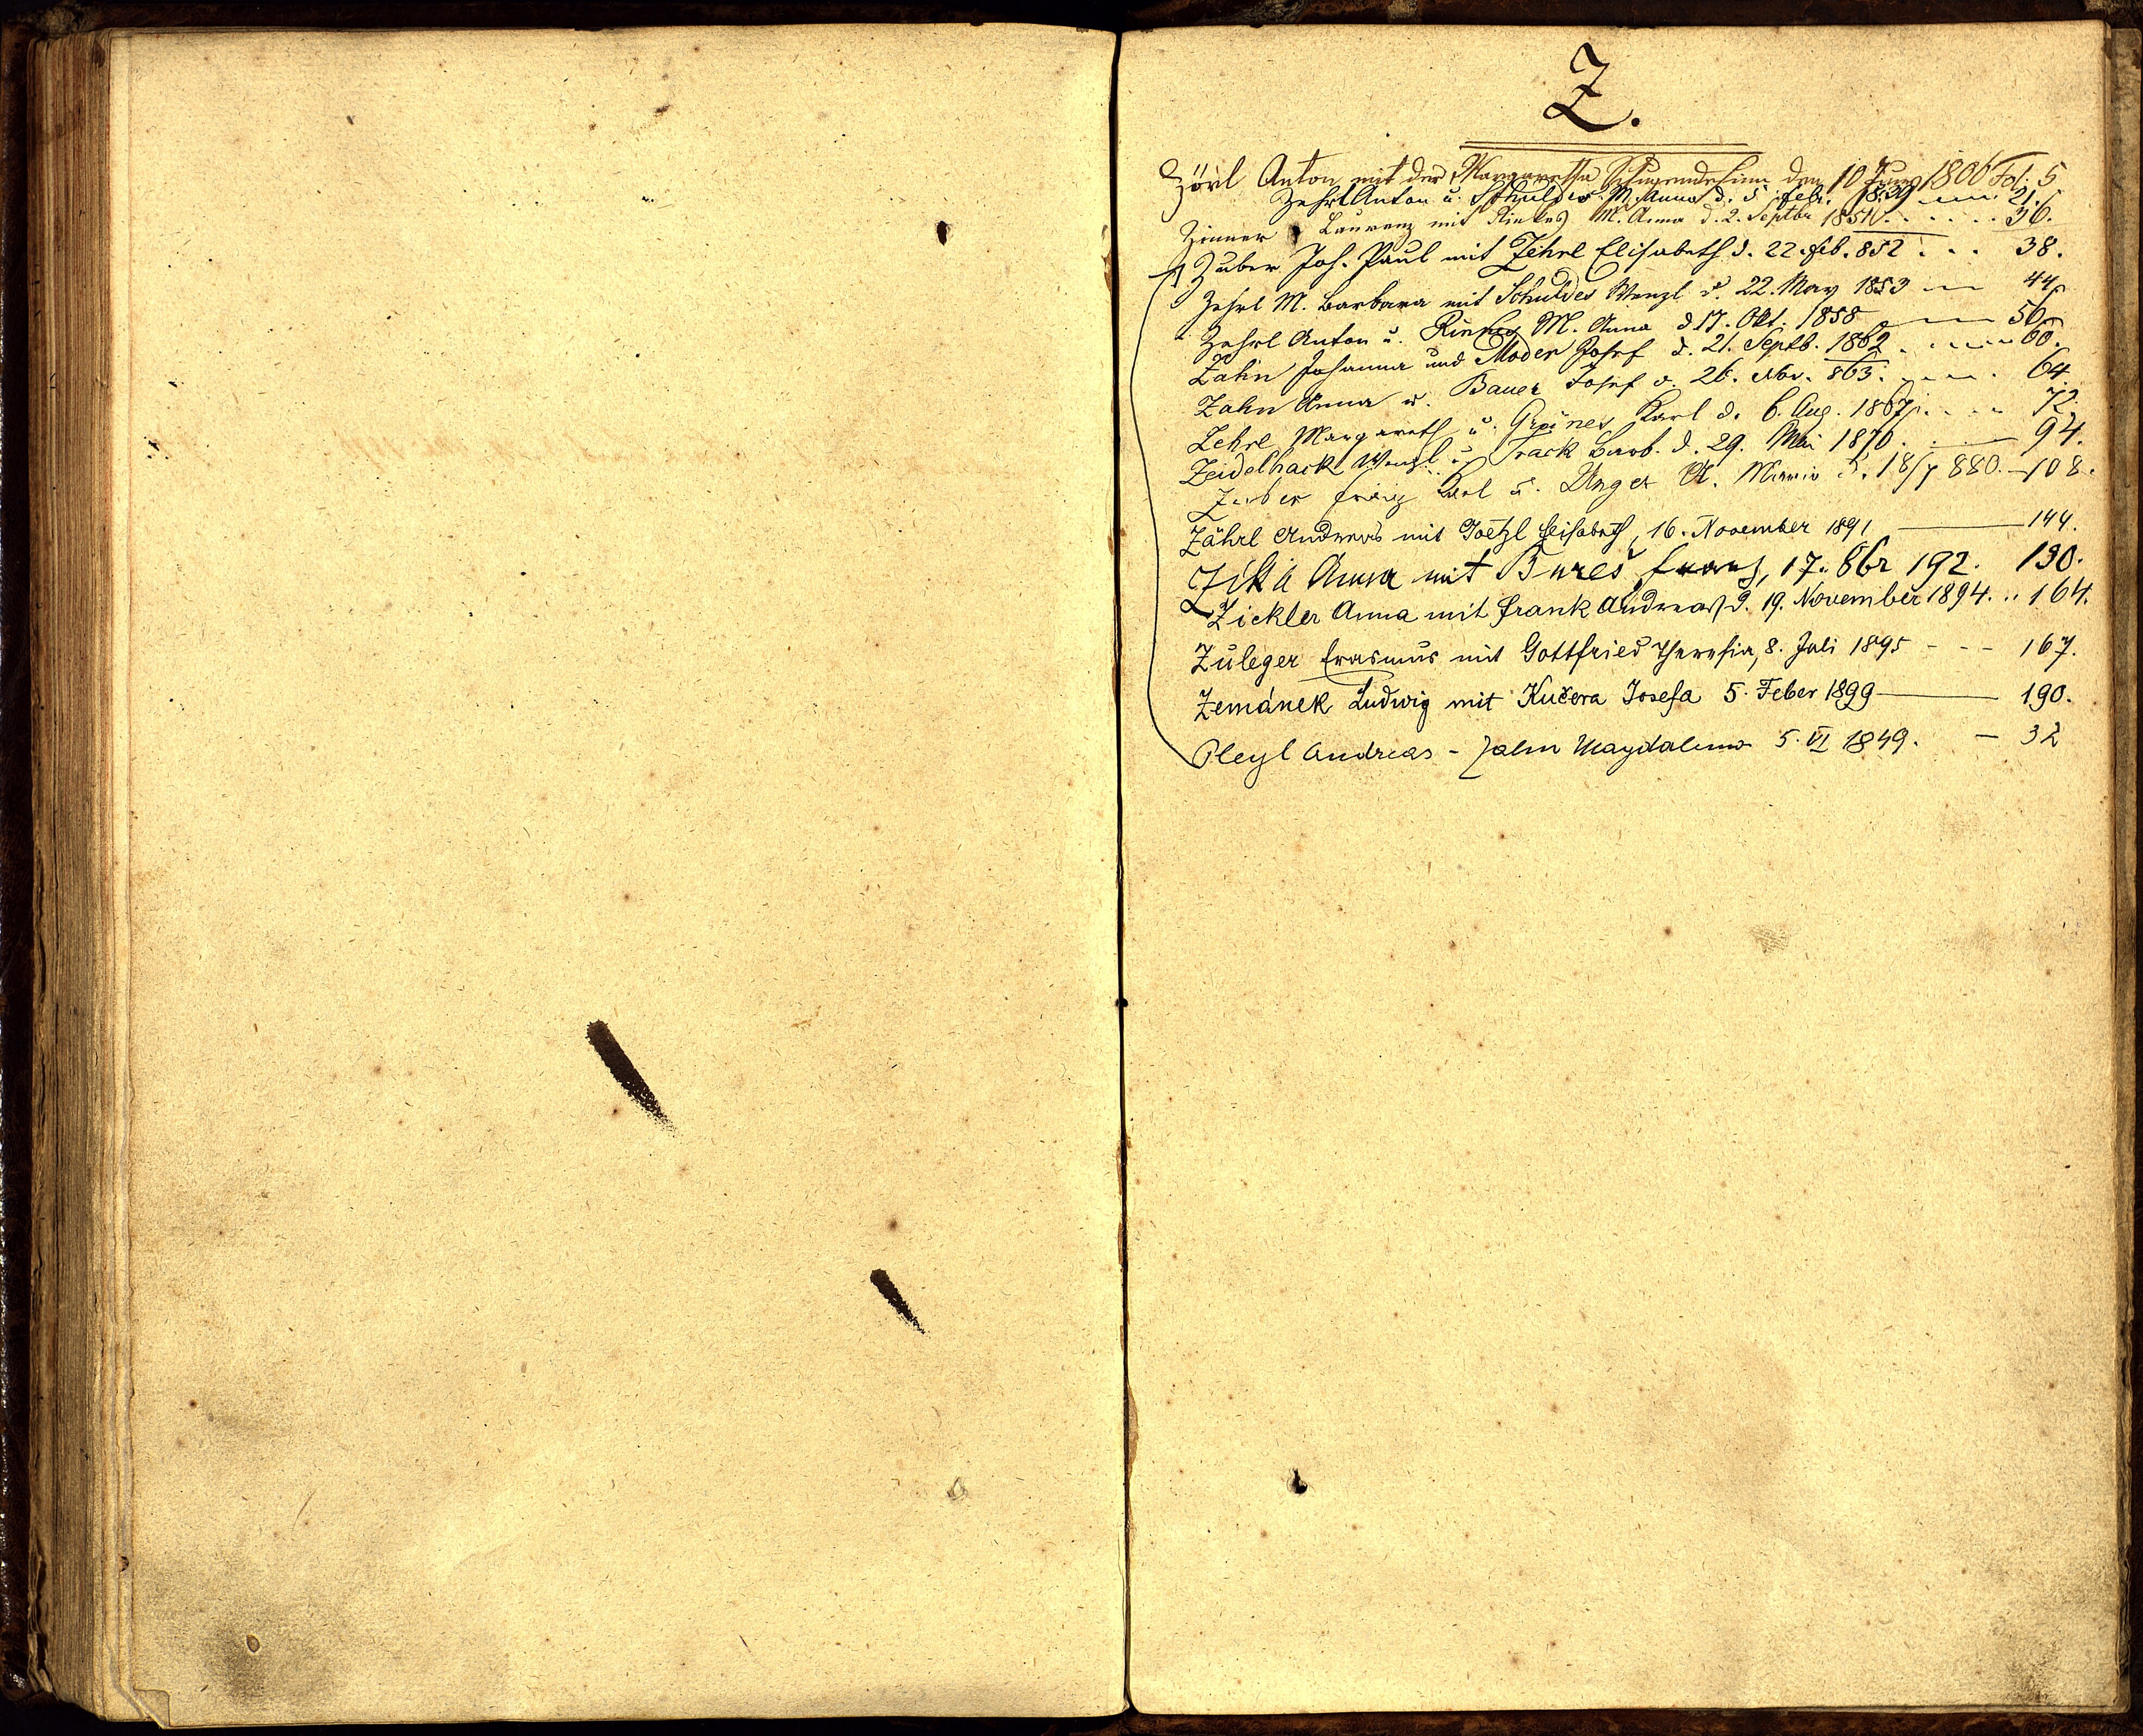 Z.
Zörl Anton mit der Margaretha den 10 Juny 1806 Fol. 5
Zehrl Anton u. Schuldes M. Anna d. 5 Febr. 1839 21.
Zinner Laurenz mit M. Anna d. 2. Septbr 1851 36.
Zuber Joh. Paul mit Zehrl Elisabeth d. 22. Feb. 852 . . . 38.
Zehrl M. Barbara mit Schuldes Wenzl d. 22. May 1853 44
Zehrl Anton u. M. Anna d 17. Okt. 1858 50
Zahn Johanna und Moder Josef d. 21. Septb. 1862 60.
Zahn Anna u. Bauer Josef d. 26. Nbr. 863. 64
Zehrl Margareth u. Grüner Karl d. 6. Aug. 1867. 72.
Zeidelhack Wenzl u. Track Barb. d. 29. Mai 1870. 94.
Zuber Franz Karl u. Unger A. Maria d. 18/7 880. — 108.
Zährl Andreas mit Goetzl Elisabeth, 16. November 1891 — 144.
Zíka Anna mit Bureš Franz, 17. 8br 192. 130.
Zickler Anna mit Frank Andreas d. 19. November 1894. .. 164.
Zuleger Erasmus mit Gottfried Theresia, 8. Juli 1895 - - - 167.
Zemánek Ludwig mit Kučera Josefa 5. Feber 1899 — 190.
Pleyl Andreas - Zahn Magdalena 5. VI 1849. — 32